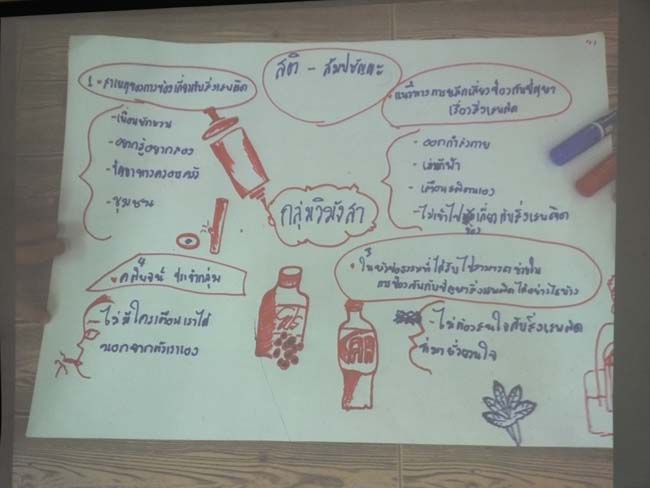 สติ - สัมปชัญญะ
1. สาเหตุของการข้องเกี่ยวกับสิ่งเสพติด
- เพื่อนชักชวน
- อยากรู้อยากลอง
- ปัญหาทางครอบครัว
- ชุมชน
แนวทางการหลีกเลี่ยงป้องกันปัญหา
เรื่องสิ่งเสพติด
- ออกกำลังกาย
- เล่นกีฬา
- เตือนสติตนเอง
- ไม่เข้าไปยุ่งเกี่ยวกับสิ่งเสพติด
กลุ่มวิมังสา
4
คติพจน์ ประจำกลุ่ม
ไม่มีใครเตือนเราได้
นอกจากตัวเราเอง
3
ในหัวข้อธรรมที่ได้รับไปสามารถช่วยใน
การป้องกันกับปัญหาสิ่งเสพติดได้อย่างไรบ้าง
- ไม่ต้องสนใจกับสิ่งเสพติด
ที่มายั่วยวนใจ